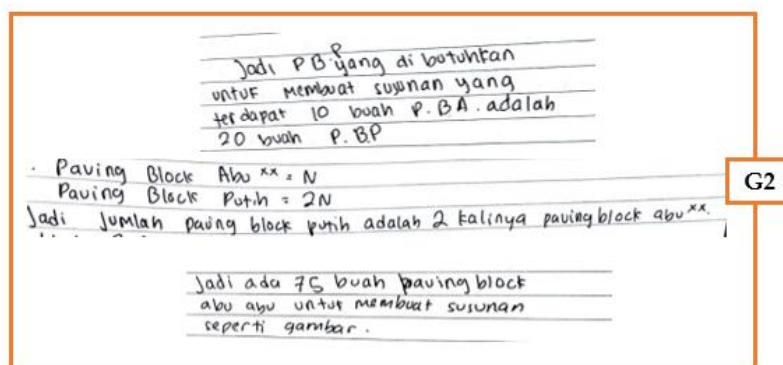 Jadi P B P yang di butuhkan
untuk membuat susunan yang
terdapat 10 buah P.BA. adalah
20 buah P.BP
. Paving Block Abu xx = N
Paving Block Putih = 2N
Jadi Jumlah paving block putih adalah 2 kalinya paving block abu xx.
G2
Jadi ada 75 buah paving block
abu abu untuk membuat susunan
seperti gambar.